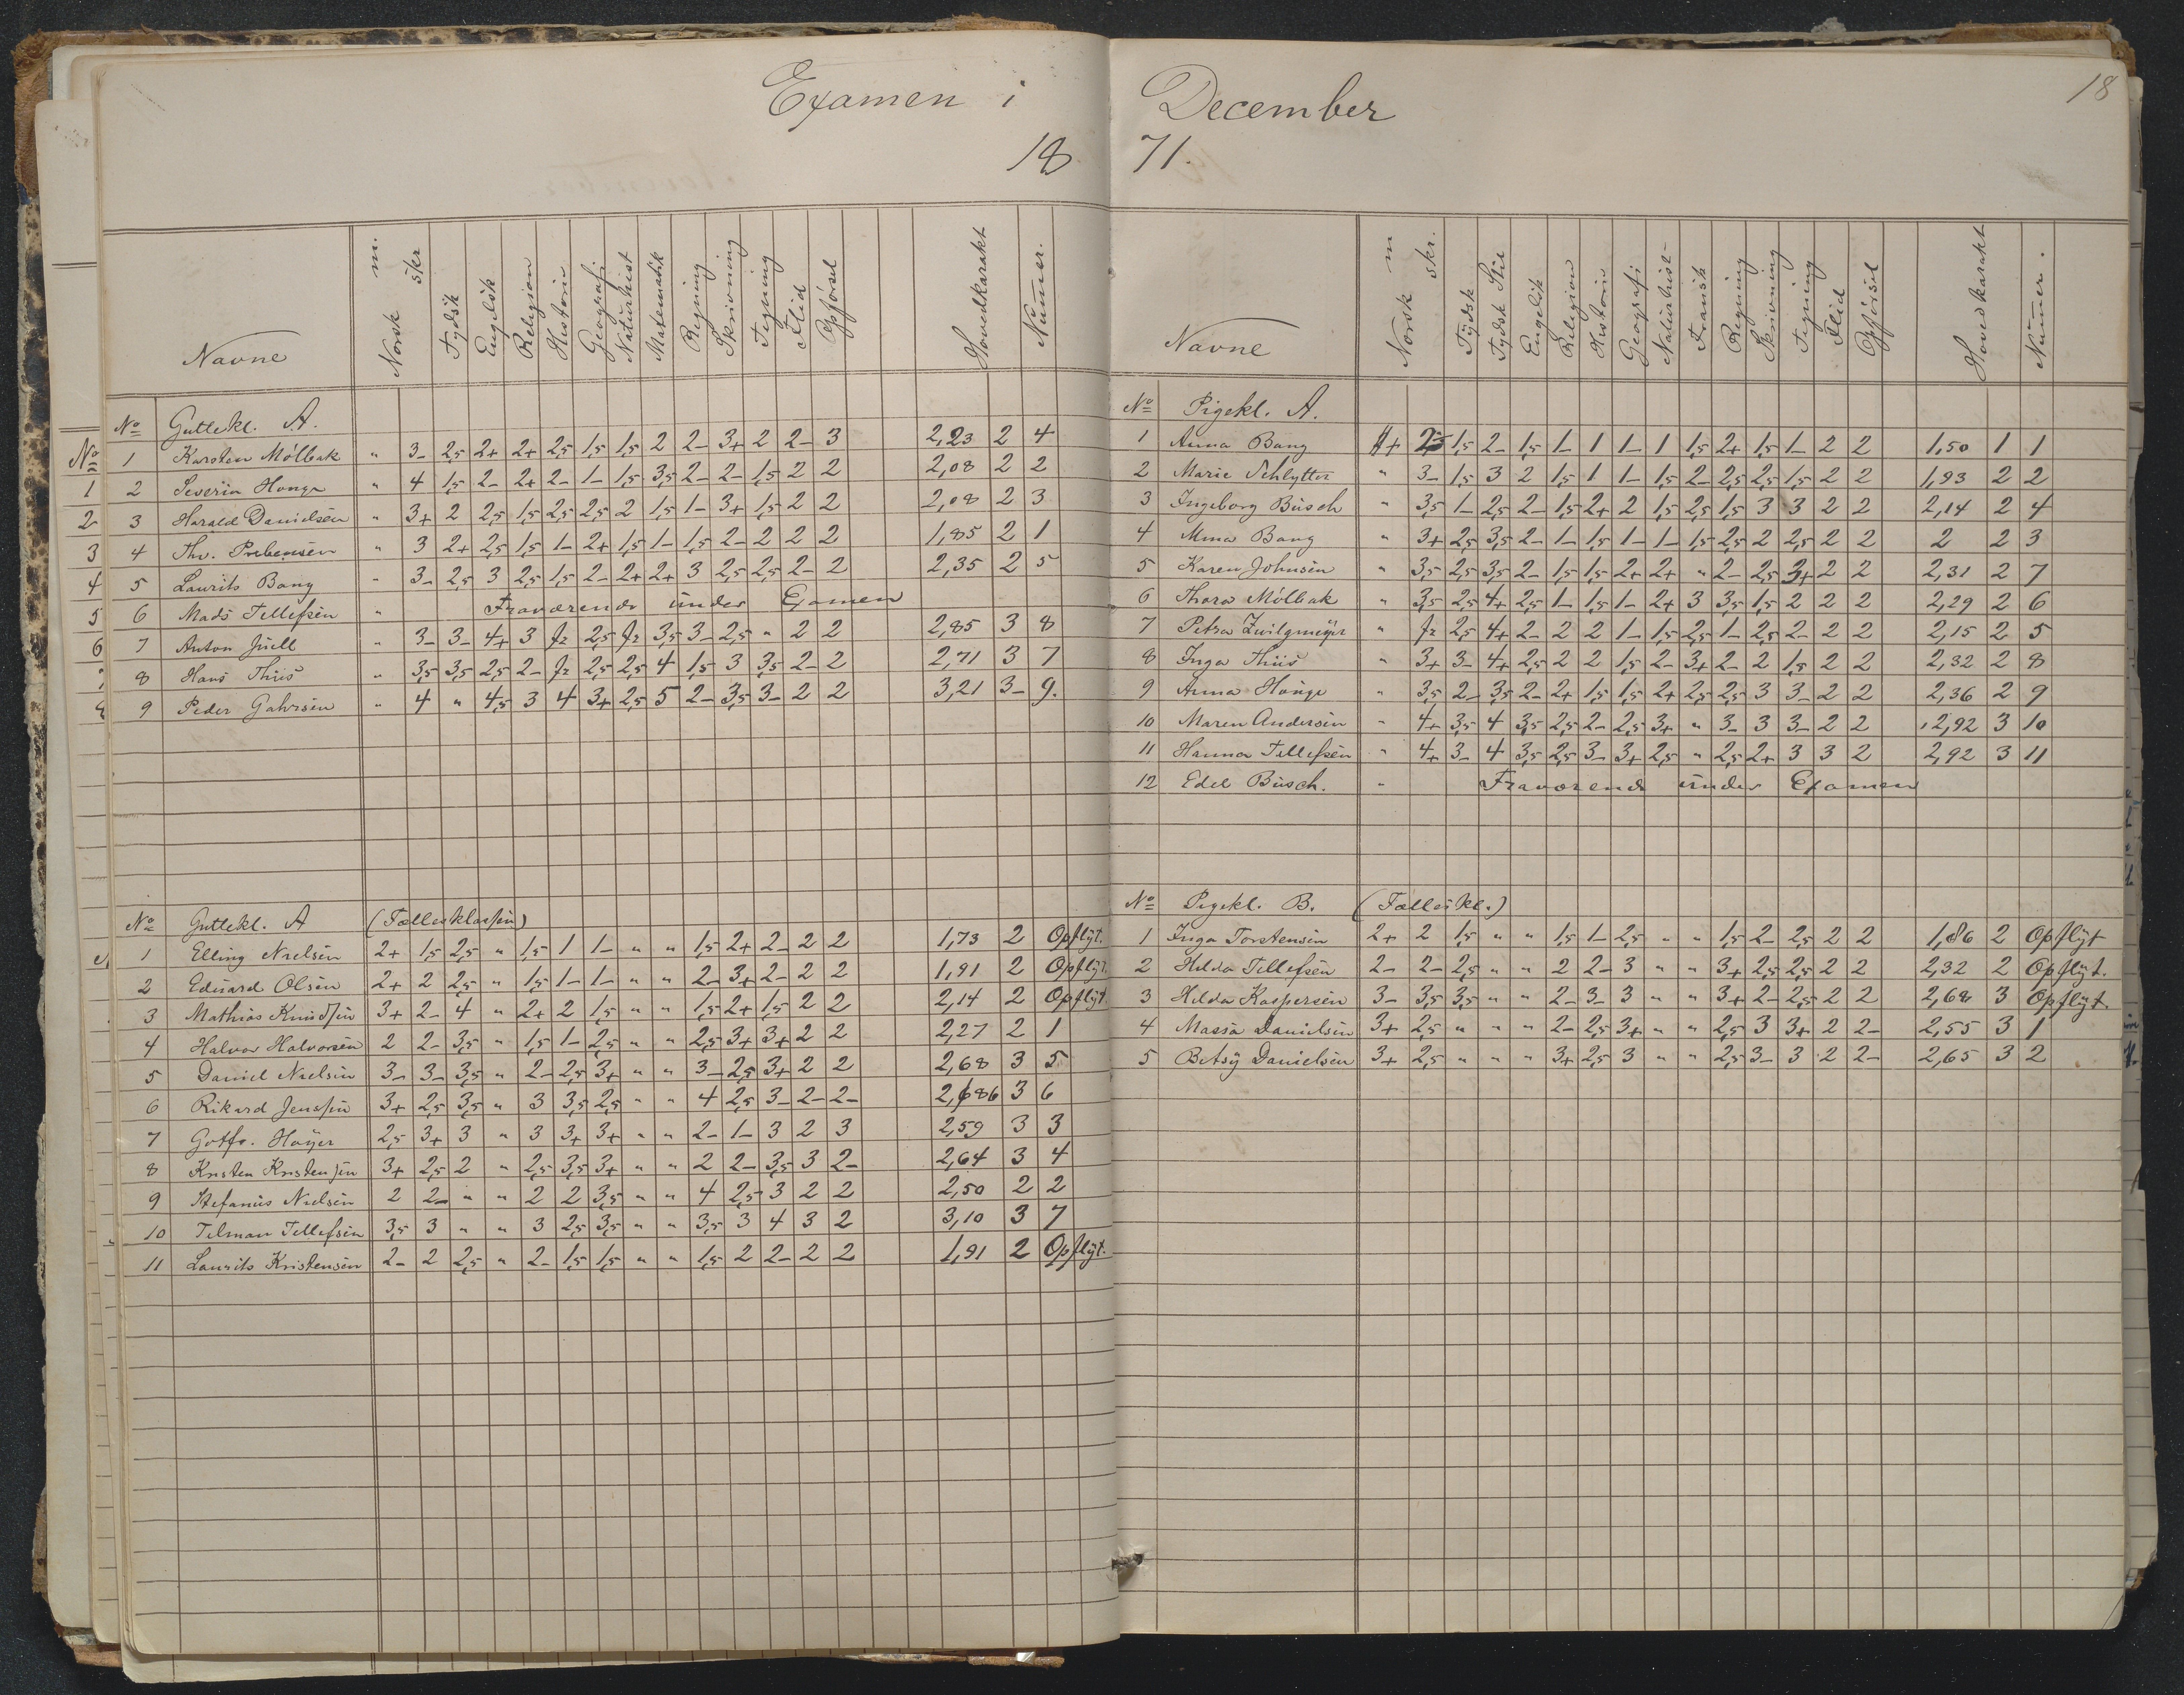 Examen i December
18 71.
18
Navne Norsk m. skr Tydsk Engelsk Religion Historie Geografi Naturhist Matematik Regning Skrivning Tegning Flid Opførsel Hovedkarakt Nummer.
No Guttekl. A.
1 Karsten Mölbak " 3- 2,5 2+ 2+ 2,5 1,5 1,5 2 2- 3+ 2 2- 3 2,23 2 4
2 Severin Honge " 4 1,5 2- 2+ 2- 1- 1,5 3,5 2- 2- 1,5 2 2 2,08 2 2
3 Harald Danielsen " 3+ 2 2,5 1,5 2,5 2,5 2 1,5 1- 3+ 1,5 2 2 2,08 2 3
4 Thv. Prebensen " 3 2+ 2,5 1,5 1- 2+ 1,5 1- 1,5 2- 2 2 2 1,85 2 1
5 Laurits Bang " 3- 2,5 3 2,5 1,5 2- 2+ 2+ 3 2,5 2,5 2- 2 2,35 2 5
6 Mads Tellefsen " Fraværende under Examen
7 Anton Juell " 3- 3- 4+ 3 fr 2,5 fr 3,5 3- 2,5 " 2 2 2,85 3 8
8 Hans Thiis " 3,5 3,5 2,5 2- fr 2,5 2,5 4 1,5 3 3,5 2- 2 2,71 3 7
9 Peder Gahrsen " 4 " 4,5 3 4 3+ 2,5 5 2- 3,5 3- 2 2 3,21 3- 9.
No Guttekl. A (Fællesklassen)
1 Elling Nielsen 2+ 1,5 2,5 " 1,5 1 1- " " 1,5 2+ 2- 2 2 1,73 2 Opflyt.
2 Eduard Olsen 2+ 2 2,5 " 1,5 1- 1- " " 2- 3+ 2- 2 2 1,91 2 Opflyt.
3 Mathias Knudsen 3+ 2- 4 " 2+ 2 1,5 " " 1,5 2+ 1,5 2 2 2,14 2 Opflyt.
4 Halvor Halvorsen 2 2- 3,5 " 1,5 1- 2,5 " " 2,5 3+ 3+ 2 2 2,27 2 1
5 Daniel Nielsen 3- 3- 3,5 " 2- 2,5 3+ " " 3- 2,5 3+ 2 2 2,68 3 5
6 Rikard Jenssen 3+ 2,5 3,5 " 3 3,5 2,5 " " 4 2,5 3- 2- 2- 2,686 3 6
7 Gotfr. Høyer 2,5 3+ 3 " 3 3+ 3+ " " 2- 1- 3 2 3 2,59 3 3
8 Kristen Kristensen 3+ 2,5 2 " 2,5 3,5 3+ " " 2 2- 3,5 3 2- 2,64 3 4
9 Stefanus Nielsen 2 2- " " 2 2 3,5 " " 4 2,5 3 2 2 2,50 2 2
10 Tilman Tellefsen 3,5 3 " " 3 2,5 3,5 " " 3,5 3 4 3 2 3,10 3 7
11 Laurits Kristensen 2- 2 2,5 " 2- 1,5 1,5 " " 1,5 2 2- 2 2 1,91 2 Opflyt.
Navne Norsk m skr. Tydsk Tydsk Stil Engelsk Religion Historie Geografi Naturhist- Fransk Regning Skrivning Tegning Flid Opførsel Hovedkarakt Nummer.
No Pigekl. A.
1 Anna Bang 2,5 1,5 2- 1,5 1- 1 1- 1 1,5 2+ 1,5 1- 2 2 1,50 1 1
2 Marie Schlytter " 3- 1,5 3 2 1,5 1 1- 1,5 2- 2,5 2,5 1,5 2 2 1,93 2 2
3 Ingeborg Busch " 3,5 1- 2,5 2- 1,5 2+ 2 1,5 2,5 1,5 3 3 2 2 2,14 2 4
4 Mina Bang " 3+ 2,5 3,5 2- 1- 1,5 1- 1- 1,5 2,5 2 2,5 2 2 2 2 3
5 Karen Johnsen " 3,5 2,5 3,5 2- 1,5 1,5 2+ 2+ " 2- 2,5 3+ 2 2 2,31 2 7
6 Thora Mölbak " 3,5 2,5 4+ 2,5 1- 1,5 1- 2+ 3 3,5 1,5 2 2 2 2,29 2 6
7 Petra Zwilgmeyer " fr 2,5 4+ 2- 2 2 1- 1,5 2,5 1- 2,5 2- 2 2 2,15 2 5
8 Inga Thiis " 3+ 3- 4+ 2,5 2 2 1,5 2- 3+ 2- 2 1,5 2 2 2,32 2 8
9 Anna Honge " 3,5 2- 3,5 2- 2+ 1,5 1,5 2+ 2,5 2,5 3 3- 2 2 2,36 2 9
10 Maren Andersen " 4+ 3,5 4 3,5 2,5 2- 2,5 3+ " 3- 3 3- 2 2 2,92 3 10
11 Hanna Tellefsen " 4+ 3- 4 3,5 2,5 3- 3+ 2,5 " 2,5 2+ 3 3 2 2,92 3 11
12 Edel Busch. " Fraværende under Examen
No Pigekl. B. (Fælleskl.)
1 Inga Torstensen 2+ 2 1,5 " " 1,5 1- 2,5 " " 1,5 2- 2,5 2 2 1,86 2 Opflyt
2 Hilda Tellefsen 2- 2- 2,5 " " 2 2- 3 " " 3+ 2,5 2,5 2 2 2,32 2 Opflyt.
3 Hilda Kaspersen 3- 3,5 3,5 " " 2- 3- 3 " " 3+ 2- 2,5 2 2 2,68 3 Opflyt.
4 Massa Danielsen 3+ 2,5 " " " 2- 2,5 3+ " " 2,5 3 3+ 2 2- 2,55 3 1
5 Betsy Danielsen 3+ 2,5 " " " 3+ 2,5 3 " " 2,5 3- 3 2 2- 2,65 3 2